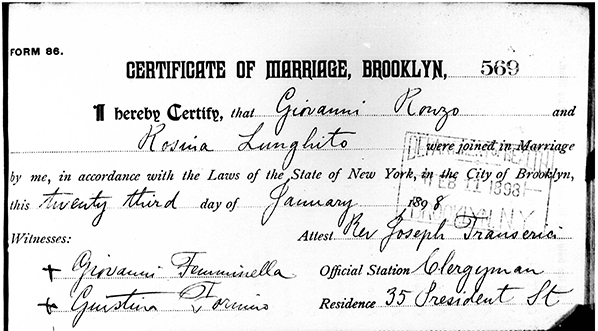 FORM 86.
CERTIFICATE OF MARRIAGE, BROOKLYN, 569
I hereby Certify, that Giovanni Ronzo and
Rosina Lunghito were joined in Marriage
by me, in accordance with the Laws of the State of New York, in the City of Brooklyn,
this twenty third day of January 1898
DEPARTMENT OF HEALTH
FEB 11 1898
BROOKLYN N.Y.
Witnesses: Attest Rev Joseph
+ Giovanni Femminella Official Station Clergyman
+ Giustina Official
Residence 35 President St